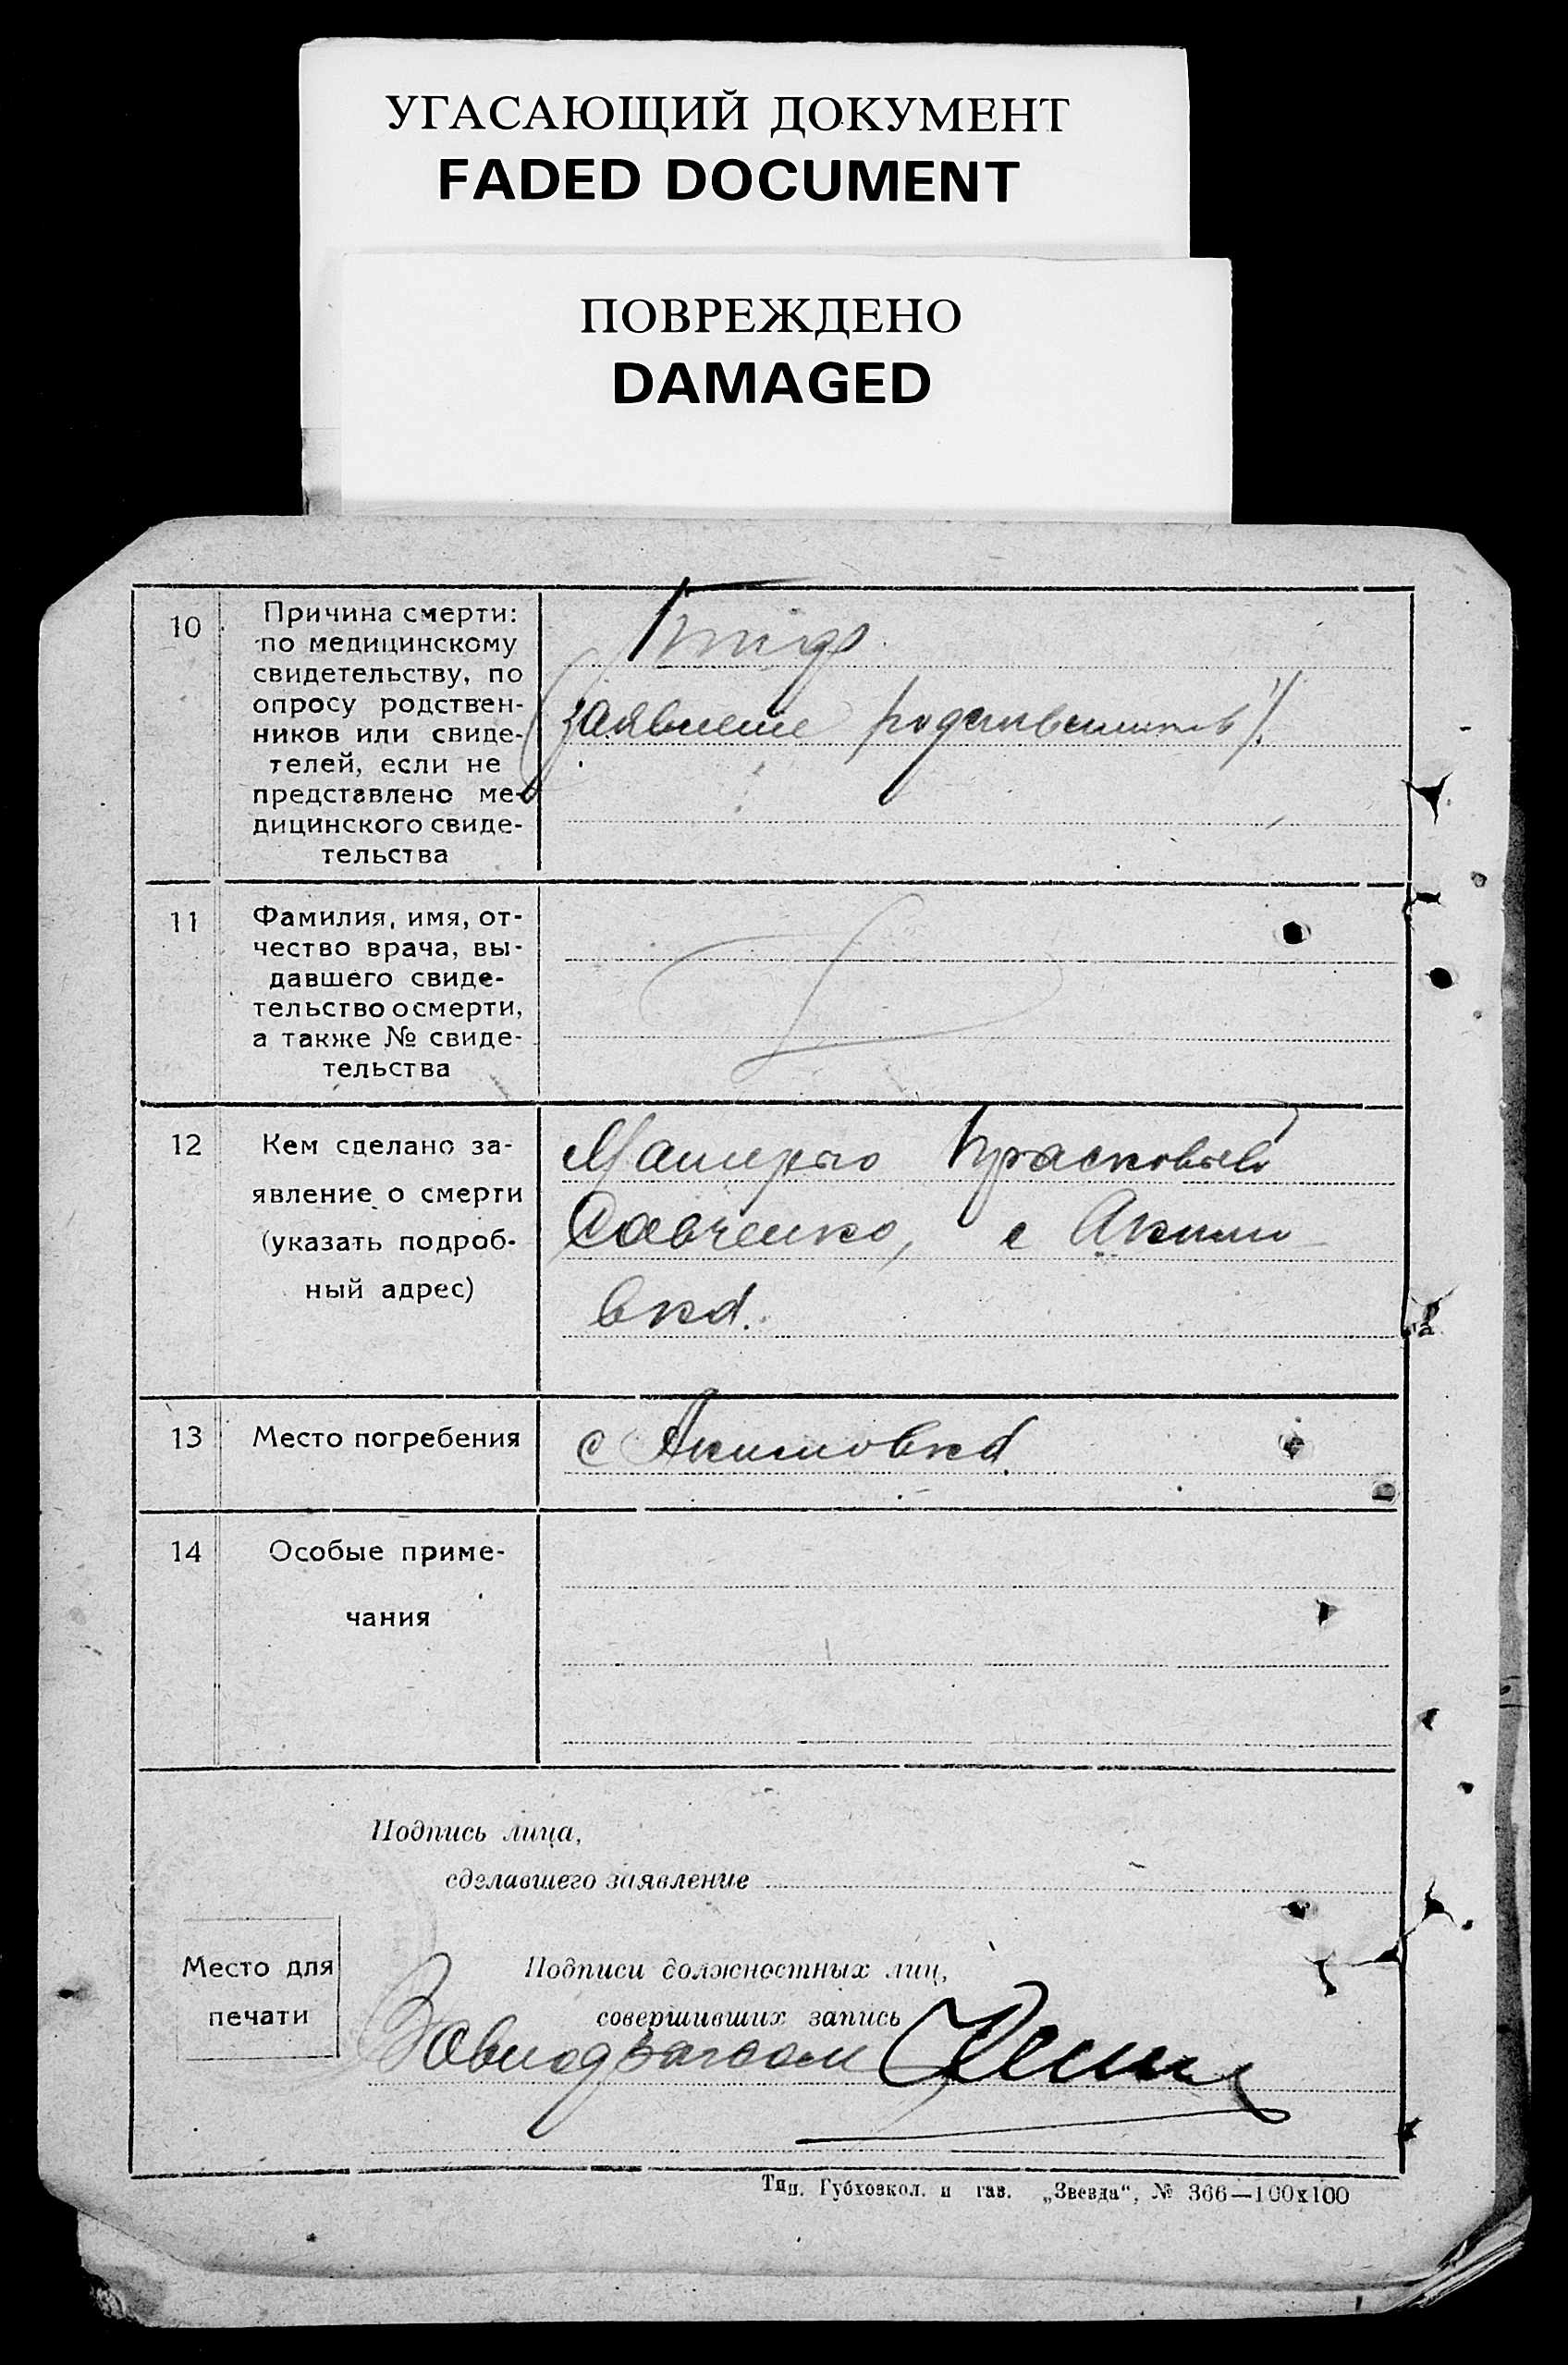 УГАСАЮЩИЙ ДОКУМЕНТ
FADED DOCUMENT
ПОВРЕЖДЕНО
DAMAGED
10
Причина смерти:
по медицинскому
свидетельству, по
опросу родствен-
ников или свиде-
телей, если не
представлено ме-
дицинского свиде-
тельства
Тиф
(заявление родственников).
11
Фамилия, имя, от-
чество врача, вы-
давшего свиде-
тельство о смерти,
а также № свиде-
тельства
12
Кем сделано за-
явление о смерти
(указать подроб-
ный адрес)
Матерью Прасковьей
Савченко, с Акимо-
вка.
13
Место погребения
с Акимовка.
14
Особые приме-
чания
Подпись лица,
сделавшего заявление
Место для
печати
Подписи должностных лиц,
совершивших запись
Завподзагсом
Тип. Губхозкол. и газ. „Звезда“, № 366—100х100